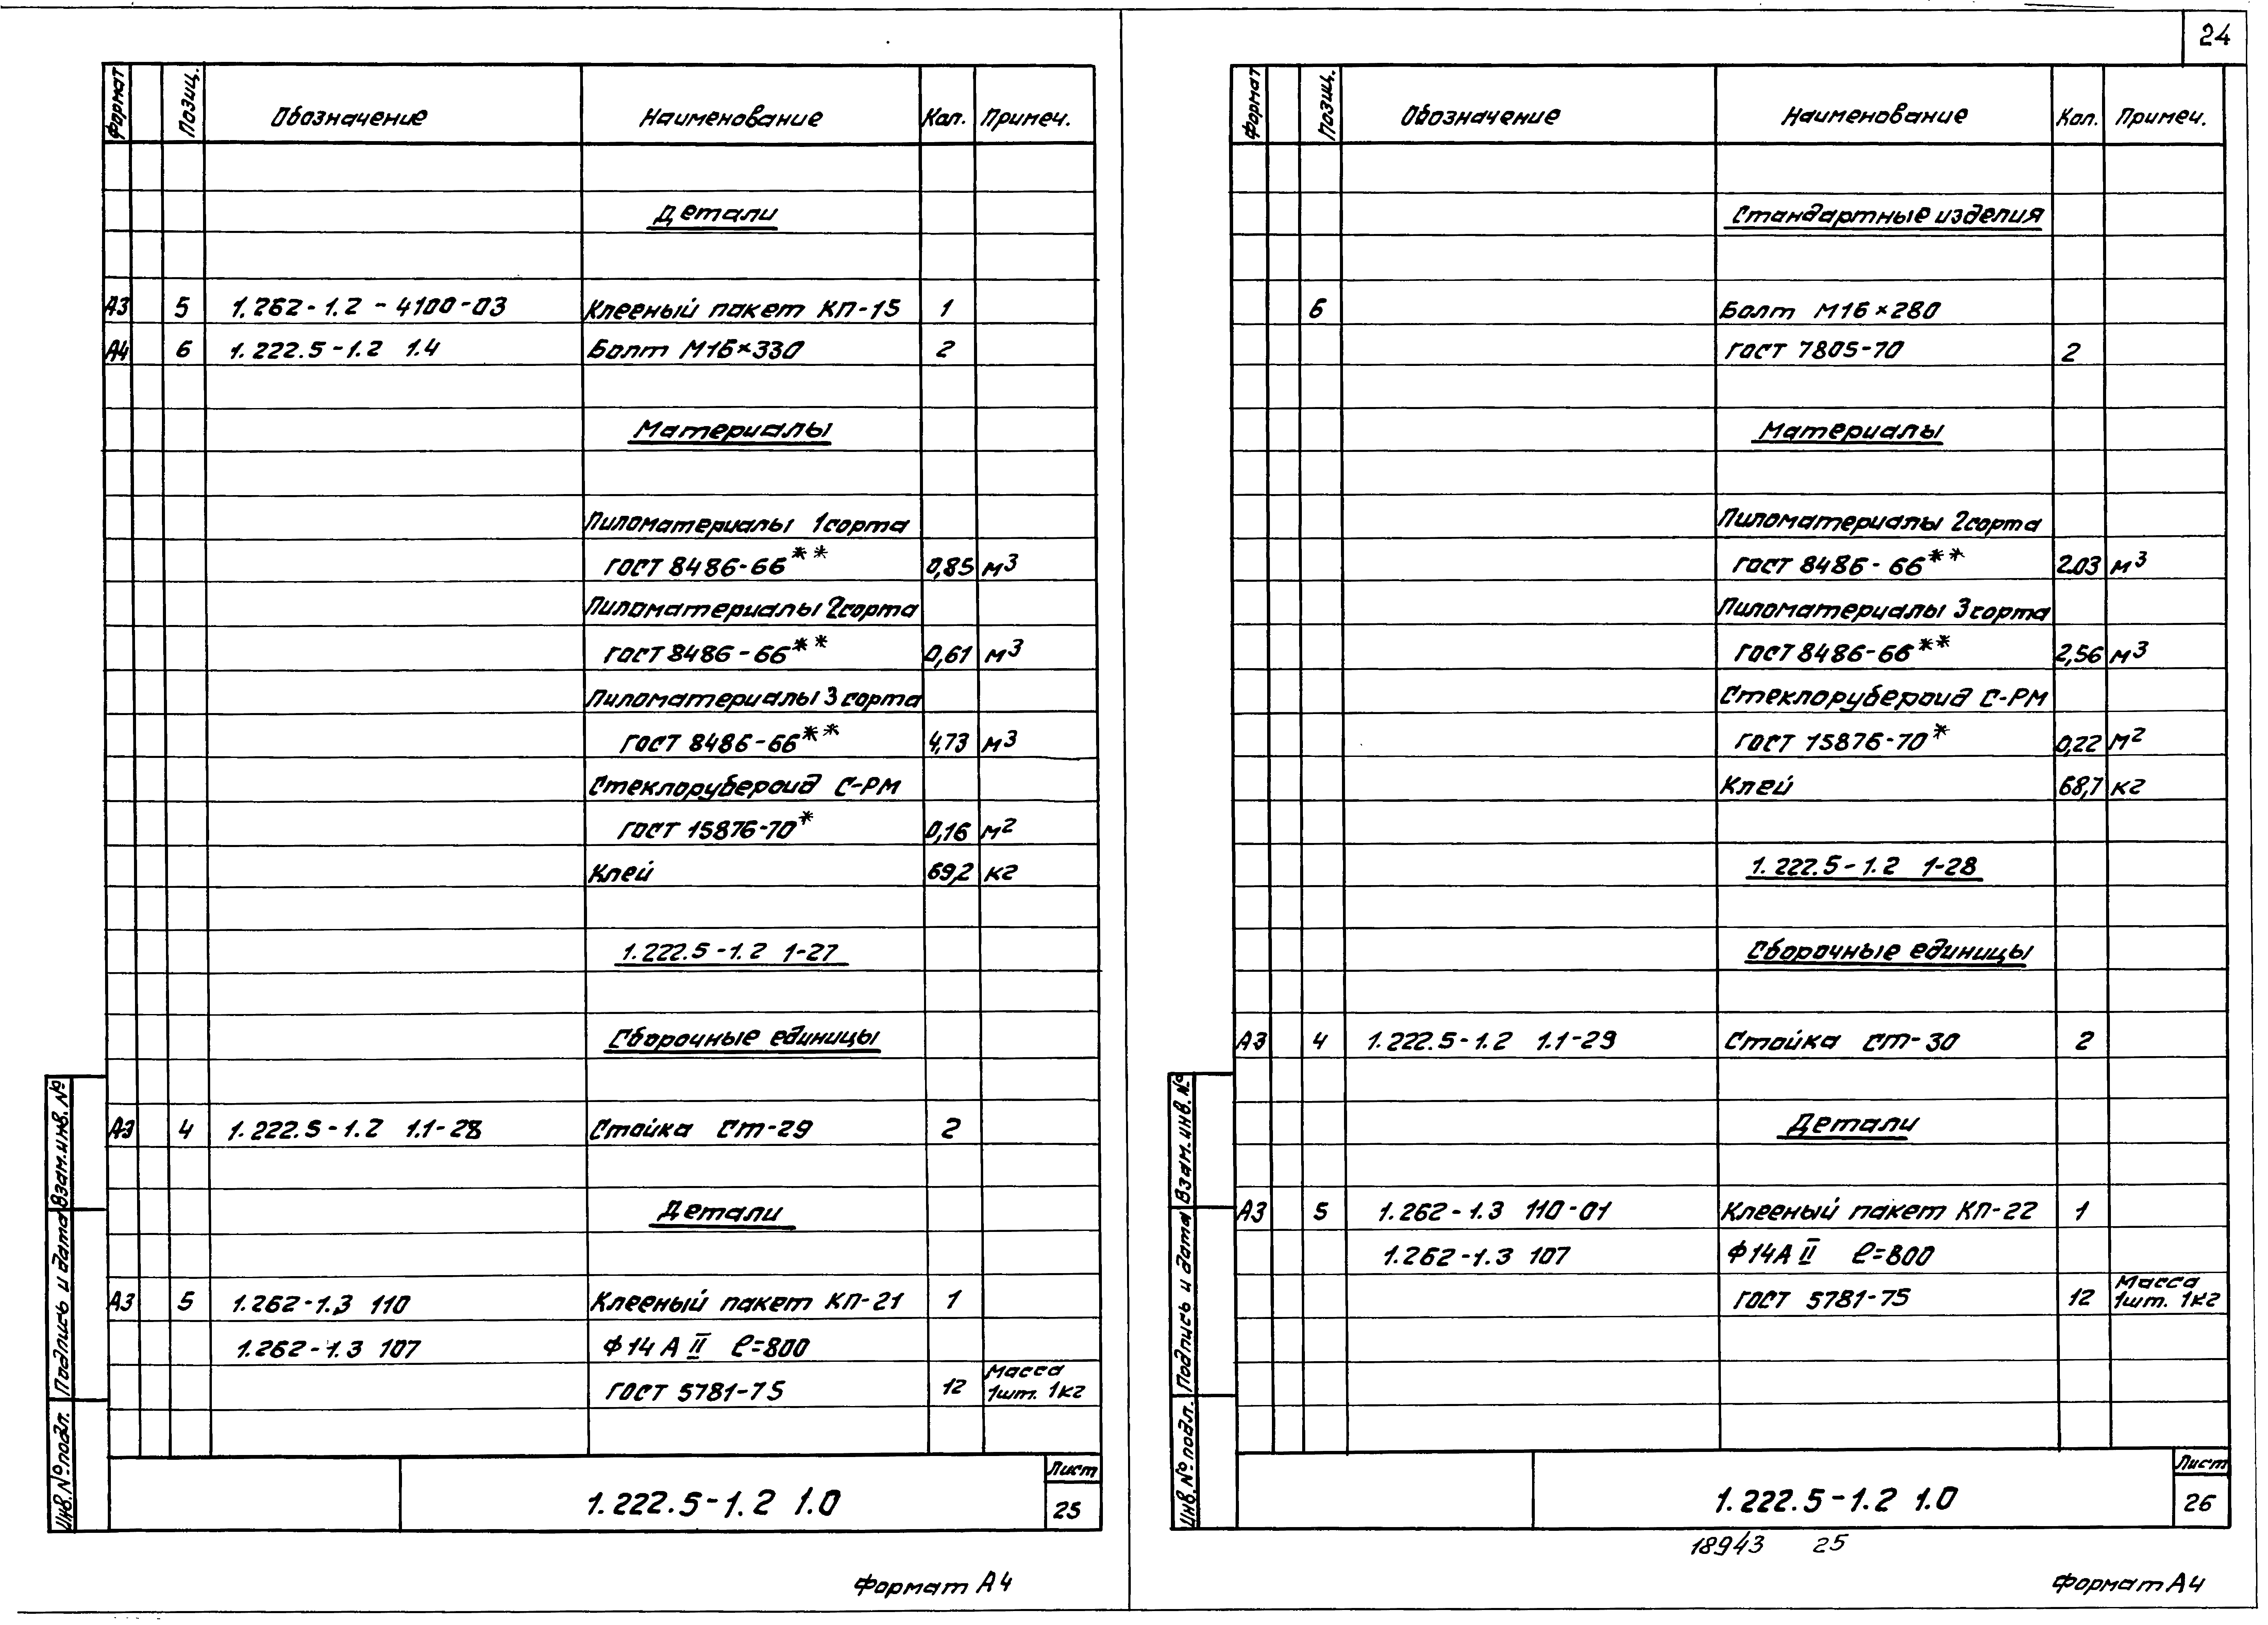 24
Формат Позиц. Обозначение Наименование Кол. Примеч.
Детали
А3 5 1.262-1.2-4100-03 Клееный пакет КП-15 1
А4 6 1.222.5-1.2 1.4 Болт М16×330 2
Материалы
Пиломатериалы 1сорта
ГОСТ 8486-66** 0,85 м³
Пиломатериалы 2сорта
ГОСТ 8486-66** 0,61 м³
Пиломатериалы 3 сорта
ГОСТ 8486-66** 4,73 м³
Стеклорубероид С-РМ
ГОСТ 15876-70* 0,16 м²
Клей 69,2 кг
1.222.5-1.2 1-27
Сборочные единицы
А3 4 1.222.5-1.2 1.1-28 Стойка Ст-29 2
Детали
А3 5 1.262-1.3 110 Клееный пакет КП-21 1
1.262-1.3 107 Ф14 А II ℓ=800
Масса
ГОСТ 5781-75 12 1шт. 1кг
Инв.№подл. Подпись и дата Взам.инв.№
Лист
1.222.5-1.2 1.0 25
Формат А4
Формат Позиц. Обозначение Наименование Кол. Примеч.
Стандартные изделия
6 Болт М16×280
ГОСТ 7805-70 2
Материалы
Пиломатериалы 2сорта
ГОСТ 8486-66** 2.03 м³
Пиломатериалы 3сорта
ГОСТ 8486-66** 2,56 м³
Стеклорубероид С-РМ
ГОСТ 15876-70* 0,22 м²
Клей 68,7 кг
1.222.5-1.2 1-28
Сборочные единицы
А3 4 1.222.5-1.2 1.1-29 Стойка Ст-30 2
Детали
А3 5 1.262-1.3 110-01 Клееный пакет КП-22 1
1.262-1.3 107 Ф14А II ℓ=800
Масса
ГОСТ 5781-75 12 1шт. 1кг
Инв.№подл. Подпись и дата Взам.инв.№
Лист
1.222.5-1.2 1.0 26
18943 25
Формат А4